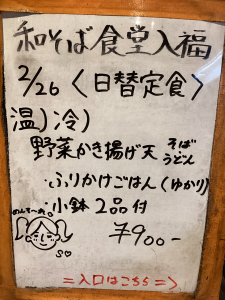 和そば食堂入福
2/26〈日替定食〉
温)冷)
野菜かき揚げ天 そば
うどん
・ふりかけごはん(ゆかり)
・小鉢 2品付
¥900-
=入口はこちら=>